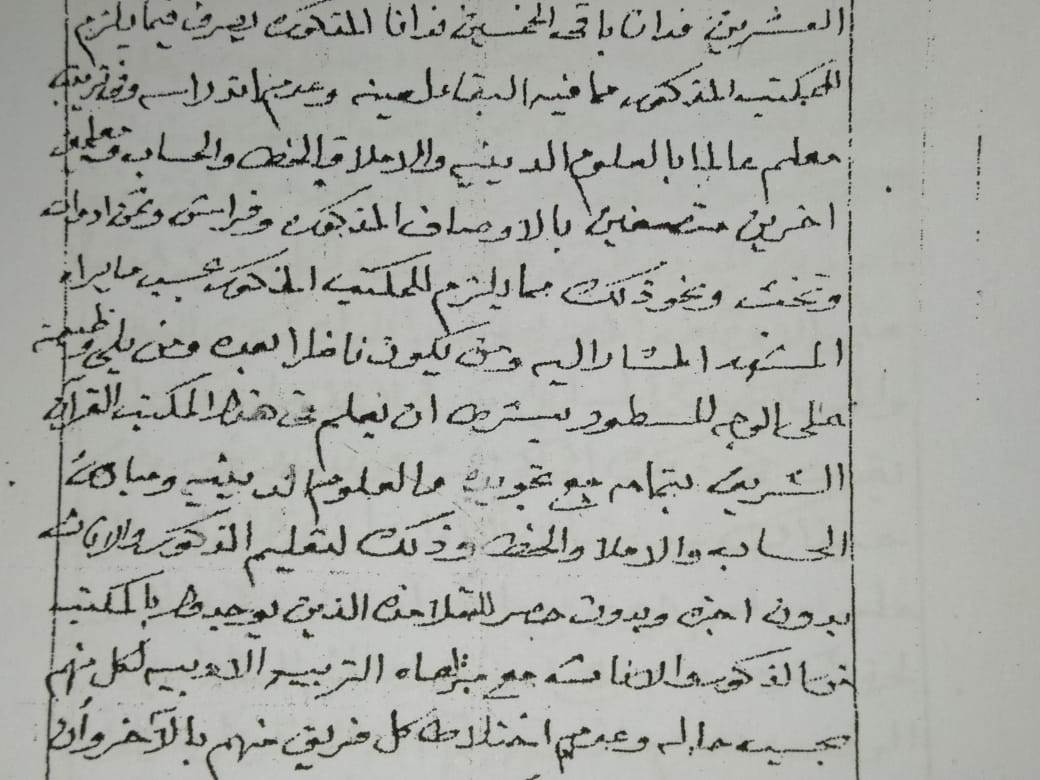 العشرين فدانا باقي الخمسين فدانا المذكورة يصرف فيما يلزم
للمكتب المذكور مما فيه البقاء لعينه وعدم اندراسه وفي ترتيب
معلم عالما بالعلوم الدينيه والاملا والخط والحساب ومعلمين
اخرين متصفين بالاوصاف المذكورة وفراش وثمن ادوات
وتخت ونحو ذلك مما يلزم للمكتب المذكور بحسب ما يراه
المشهد المشار اليه ومن يكون ناظرا بعده ومن يلي وظيفة
على الوجه المسطور بشرط ان يعلم في هذا المكتب القرآن
الشريف بتمامه مع تجويده والعلوم الدينيه ومبادئ
الحساب والاملا والخط وذلك لتعليم الذكور والاناث
بدون اجرة وبدون حصر للتلامذه الذين يوجدوا بالمكتب
من الذكور والاناث مع مراعاه التربيه الادبيه لكل منهم
بحسب حاله وعدم اختلاط كل فريق منهم بالآخر وأن